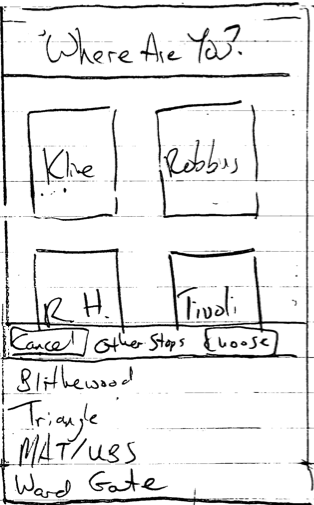 Where Are You?
Kline Robbins
R. H. Tivoli
Cancel Other Stops Choose
Blithewood
Triangle
MAT/UBS
Ward Gate